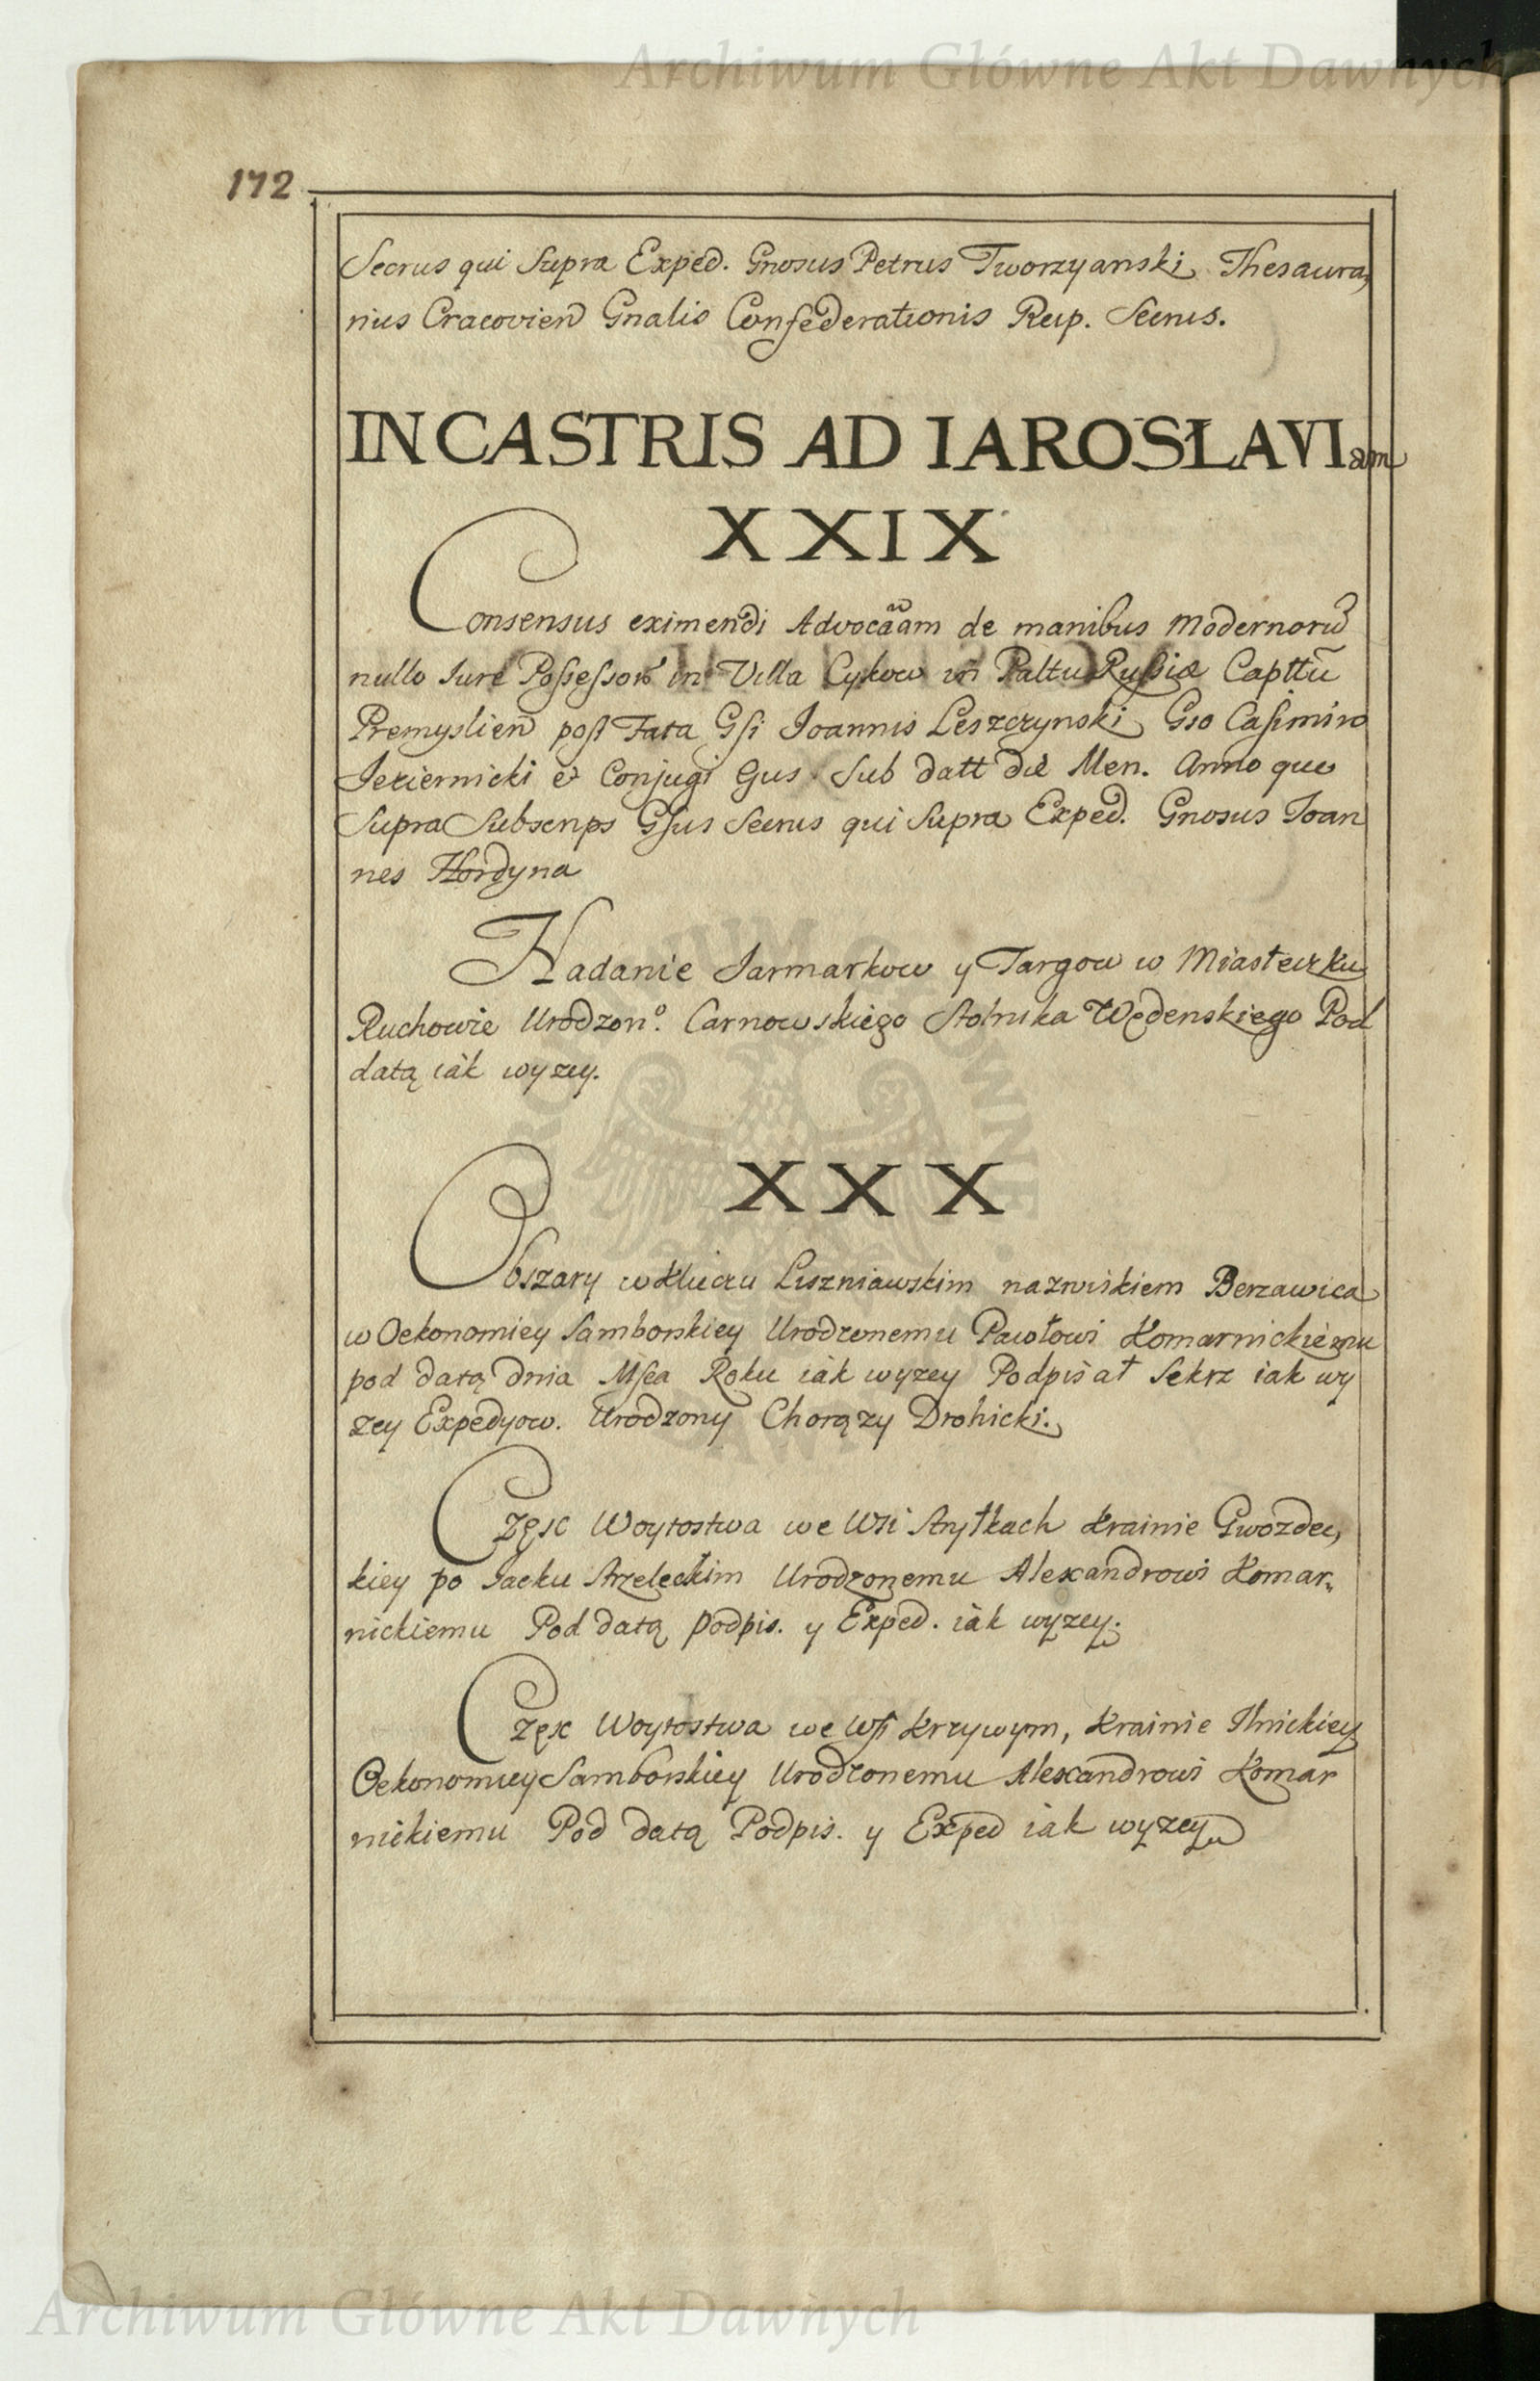 Archiwum Główne Akt Dawnych
172
Secrus qui Supra Exped. Gnosus Petrus Tworzyanski Thesaura,
rius Cracovien Gnalis Confederationis Reip. Secrus.
IN CASTRIS AD IAROSŁAVIam
XXIX
Consensus eximendi Advocaam de manibus Modernorū
nullo Iure Possessorū in Villa Cykow in Paltu Russiæ Capttū
Premyslien post Fata Gsi Ioannis Leszczynski Gso Casimiro
Jeziernicki et Conjugi Eius Sub datt die Men. Anno quo
Supra Subscrips Gsus Secrus qui Supra Exped. Gnosus Ioan
nes Hordyna
Nadanie Jarmarkow y Targow w Miasteczku
Ruchowie Urodzon.o Carnowskiego Stolnika Wędenskiego Pod
datą iak wyzey.
XXX
Obszary w Kluczu Liszniawskim nazwiskiem Berzawica
w Oekonomiey Samborskiey Urodzonemu Pawłowi Komarnickiemu
pod datą dnia Msca Roku iak wyzey Podpisał Sekrz iak wy
zey Expedyow. Urodzony Chorązy Drohicki.
Częsc Woytostwa we Wsi Stryłkach Krainie Gwozdec,
kiey po Jacku Strzeleckim Urodzonemu Alexandrowi Komar,,
nickiemu Pod datą podpis. y Exped. iak wyzey.
Częsc Woytostwa we Wsi Krzywym, Krainie Ilnickiey
Oekonomiey Samborskiey Urodzonemu Alexandrowi Komar
nickiemu Pod datą Podpis. y Exped iak wyzey
Archiwum Główne Akt Dawnych